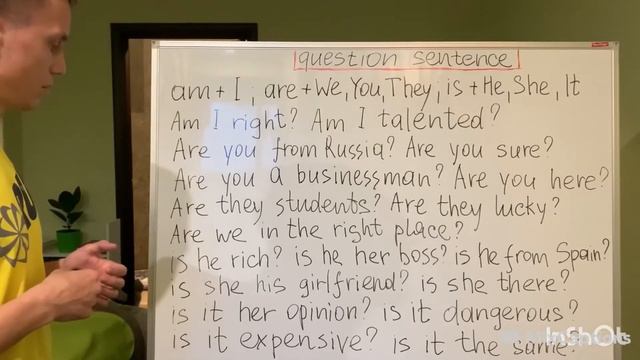 question sentence
am + I ; are + We, You, They, is + He, She, It
Am I right? Am I talented?
Are you from Russia? Are you sure?
Are you a businessman? Are you here?
Are they students? Are they lucky?
Are we in the right place?
is he rich? is he her boss? is he from Spain?
is she his girlfriend? is she there?
is it her opinion? is it dangerous?
is it expensive? is it the same?
InShOt